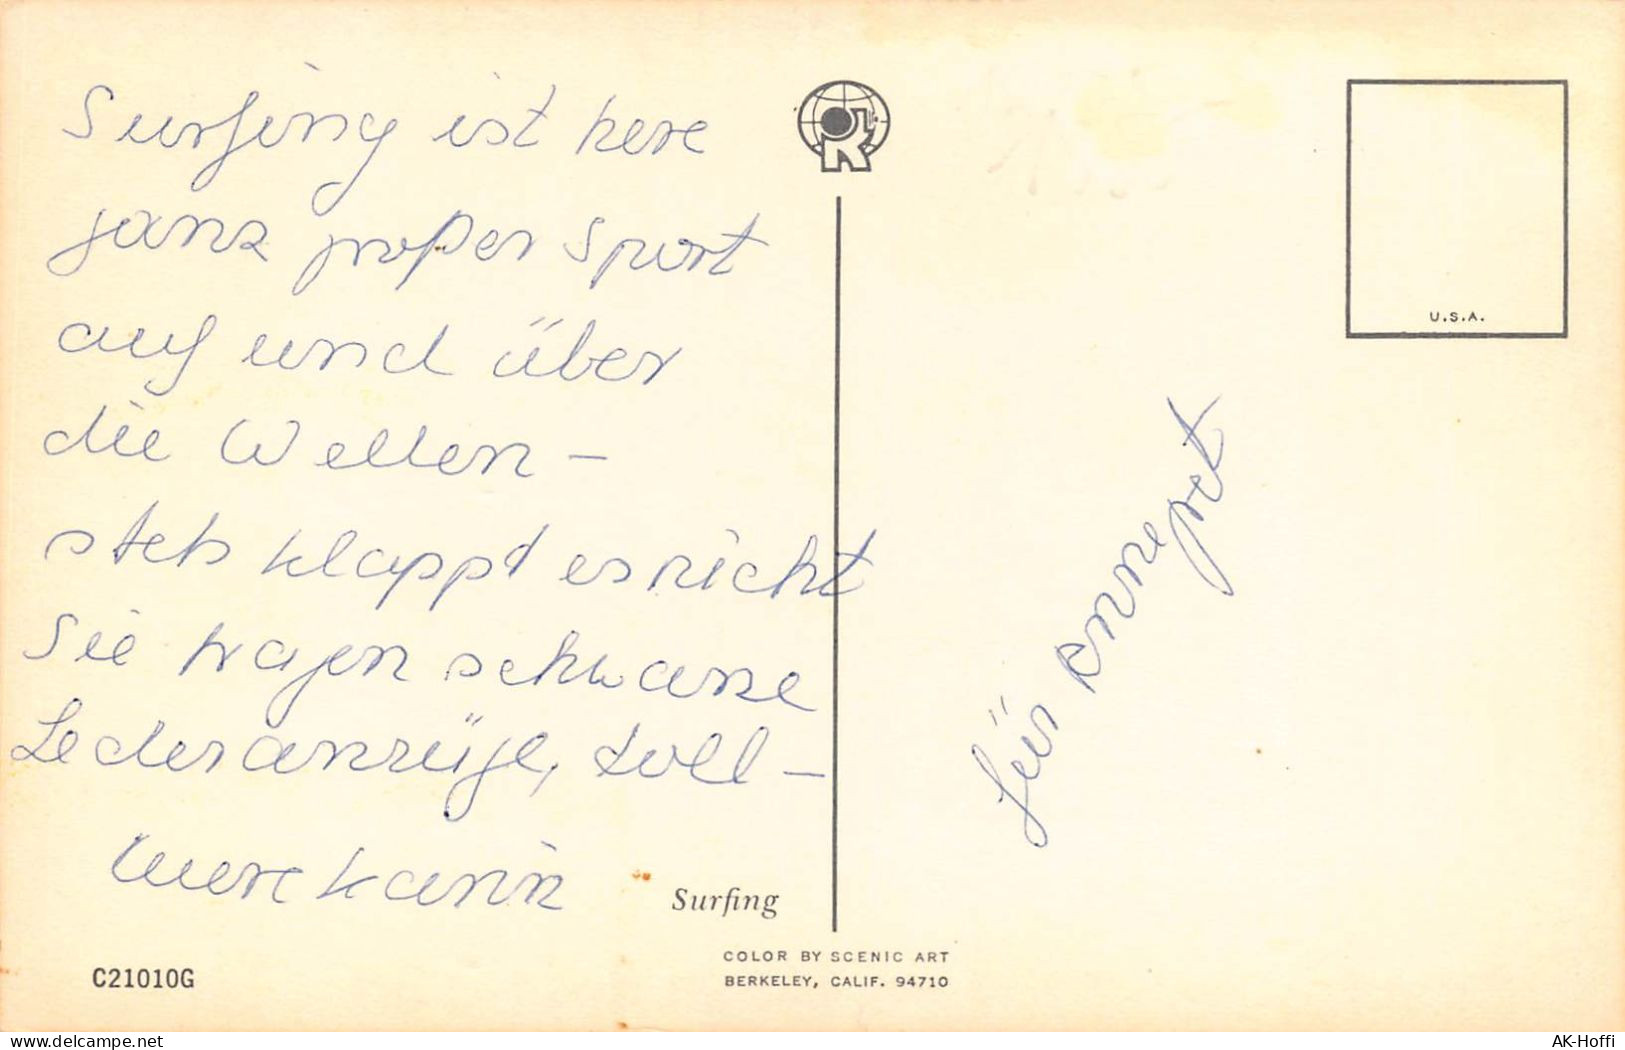 Surfing ist here
ganz großer Sport
auf und über
die Wellen –
stets klappt es nicht
Sie tragen schwarze
Lederanzüge, toll –
Eure Karin
für Annegret
U.S.A.
Surfing
COLOR BY SCENIC ART
BERKELEY, CALIF. 94710
C21010G
www.delcampe.net
AK-Hoffi